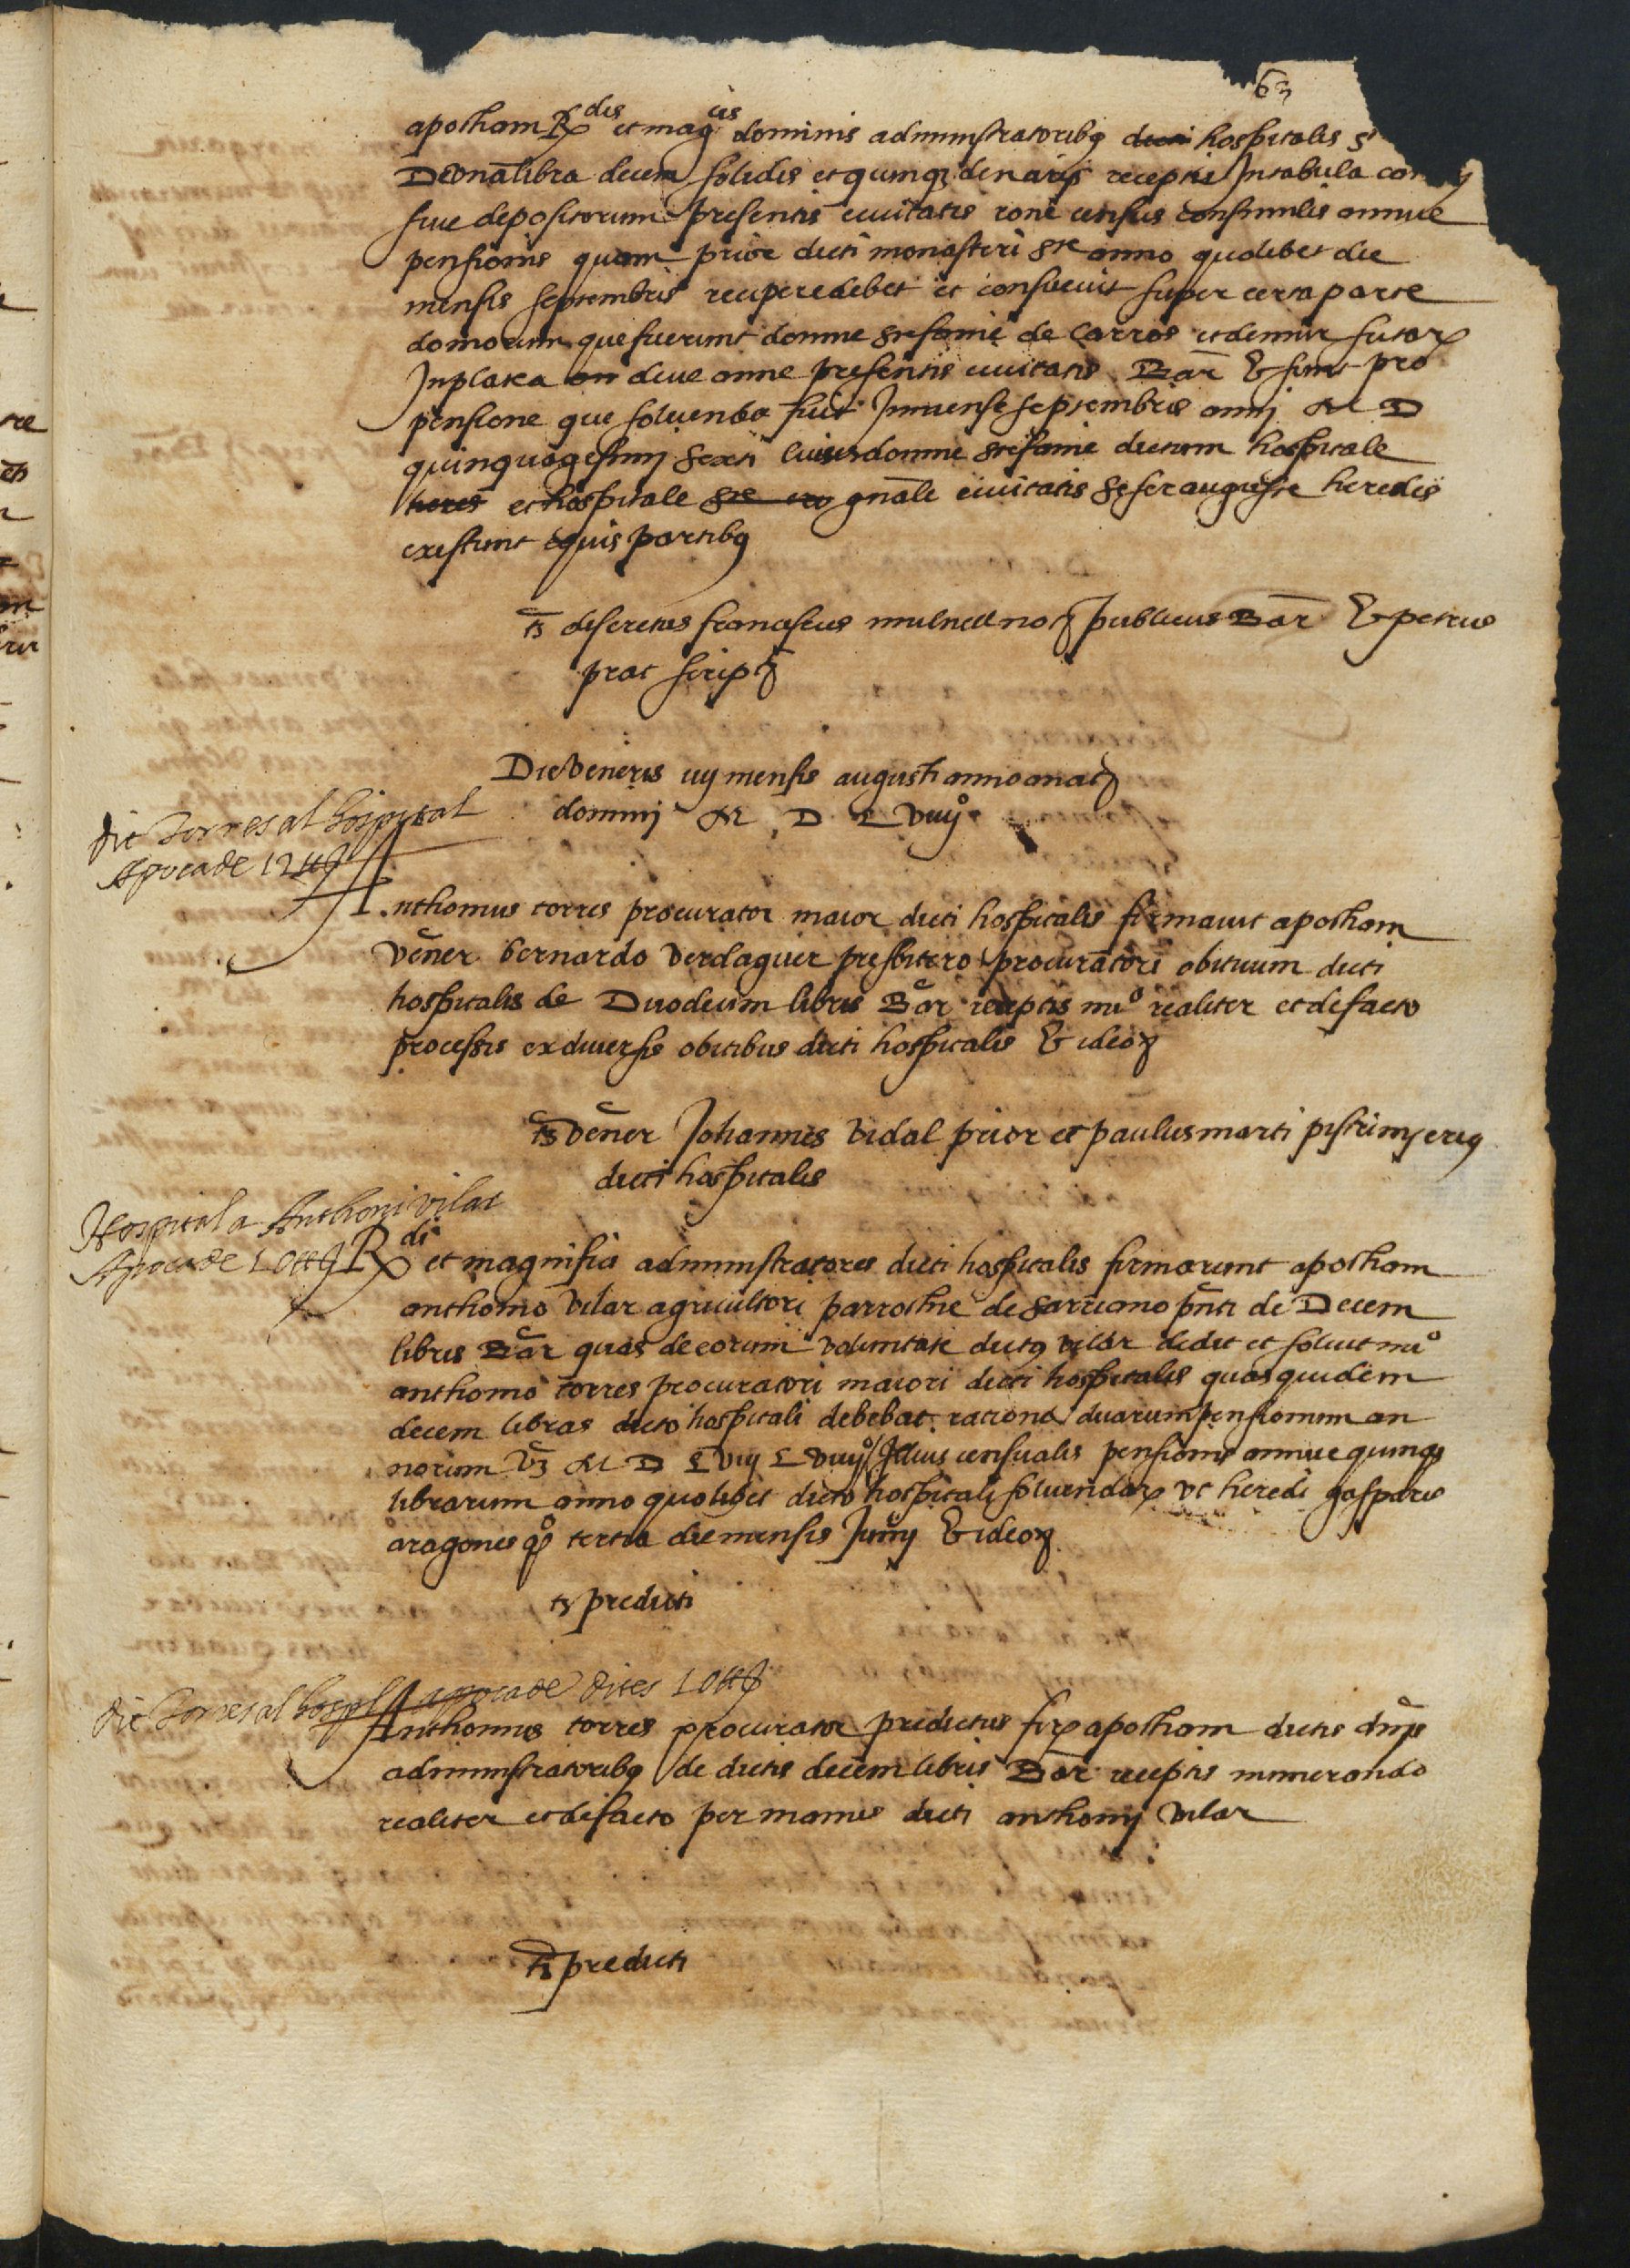 63
apocham R.dis et mag.cis dominis administratoribus dicti hospitalis s
De vna libra decem solidis et quinque denarijs receptis In tabula com
siue depositorum presentis ciuitatis rone census consimilis annue
pensionis quam prior dicti monasterii anno quolibet die
mensis septembris recipere debet et consueuit super certa parte
domorum que fuerunt domne stefanie de carros et
In platea diue anne presentis ciuitatis Bar & sunt pro
pensione que soluenda fuit In mense septembris anni M D
quinquagesimi sexti cuius domne stefanie dictum hospitale
heres et hospitale gnāle ciuitatis Seserauguste heredes
existunt equis partibus
ts discretus franciscus mulnell not publicus Bar & petrus
prat script
Die Veneris iiij mensis augusti anno a nat
domini M D L viiijº
dit torres al hospital
Apoca de 12 ₶
Anthonius torres procurator maior dicti hospitalis firmauit apocham
Vener bernardo Verdaguer presbitero procuratori obituum dicti
hospitalis de Duodecim libris Bar receptis nuº realiter et de facto
processis ex diuersis obitibus dicti hospitalis & ideo
ts Vener Johannes Vidal prior et paulus marti
dicti hospitalis
Hospital a Anthoni vilar
Apoca de 10 ₶
R.di et magnifici administratores dicti hospitalis firmarunt apocham
anthonio Vilar agricultori parrochie de sarriano pnti de Decem
libris Bar quas de eorum voluntate dictus vilar dedit et soluit miº
anthonio torres procuratori maiori dicti hospitalis quasquidem
decem libras dicto hospitali debebat ratione duarum pensionum an
norum vz M D L viij L viiijº Illius censualis pensionis annue quinque
librarum anno quolibet dicto hospitali soluendar vt heredi gasparis
aragones qº tertia die mensis Junij & ideo
ts predicti
dit torres al hospl apoca de dites 10 ₶
Anthonius torres procurator predictus fir apocham dictis dnis
administratoribus de dictis decem libris Bar receptis numerando
realiter et de facto per manus dicti anthonij Vilar
ts predicti